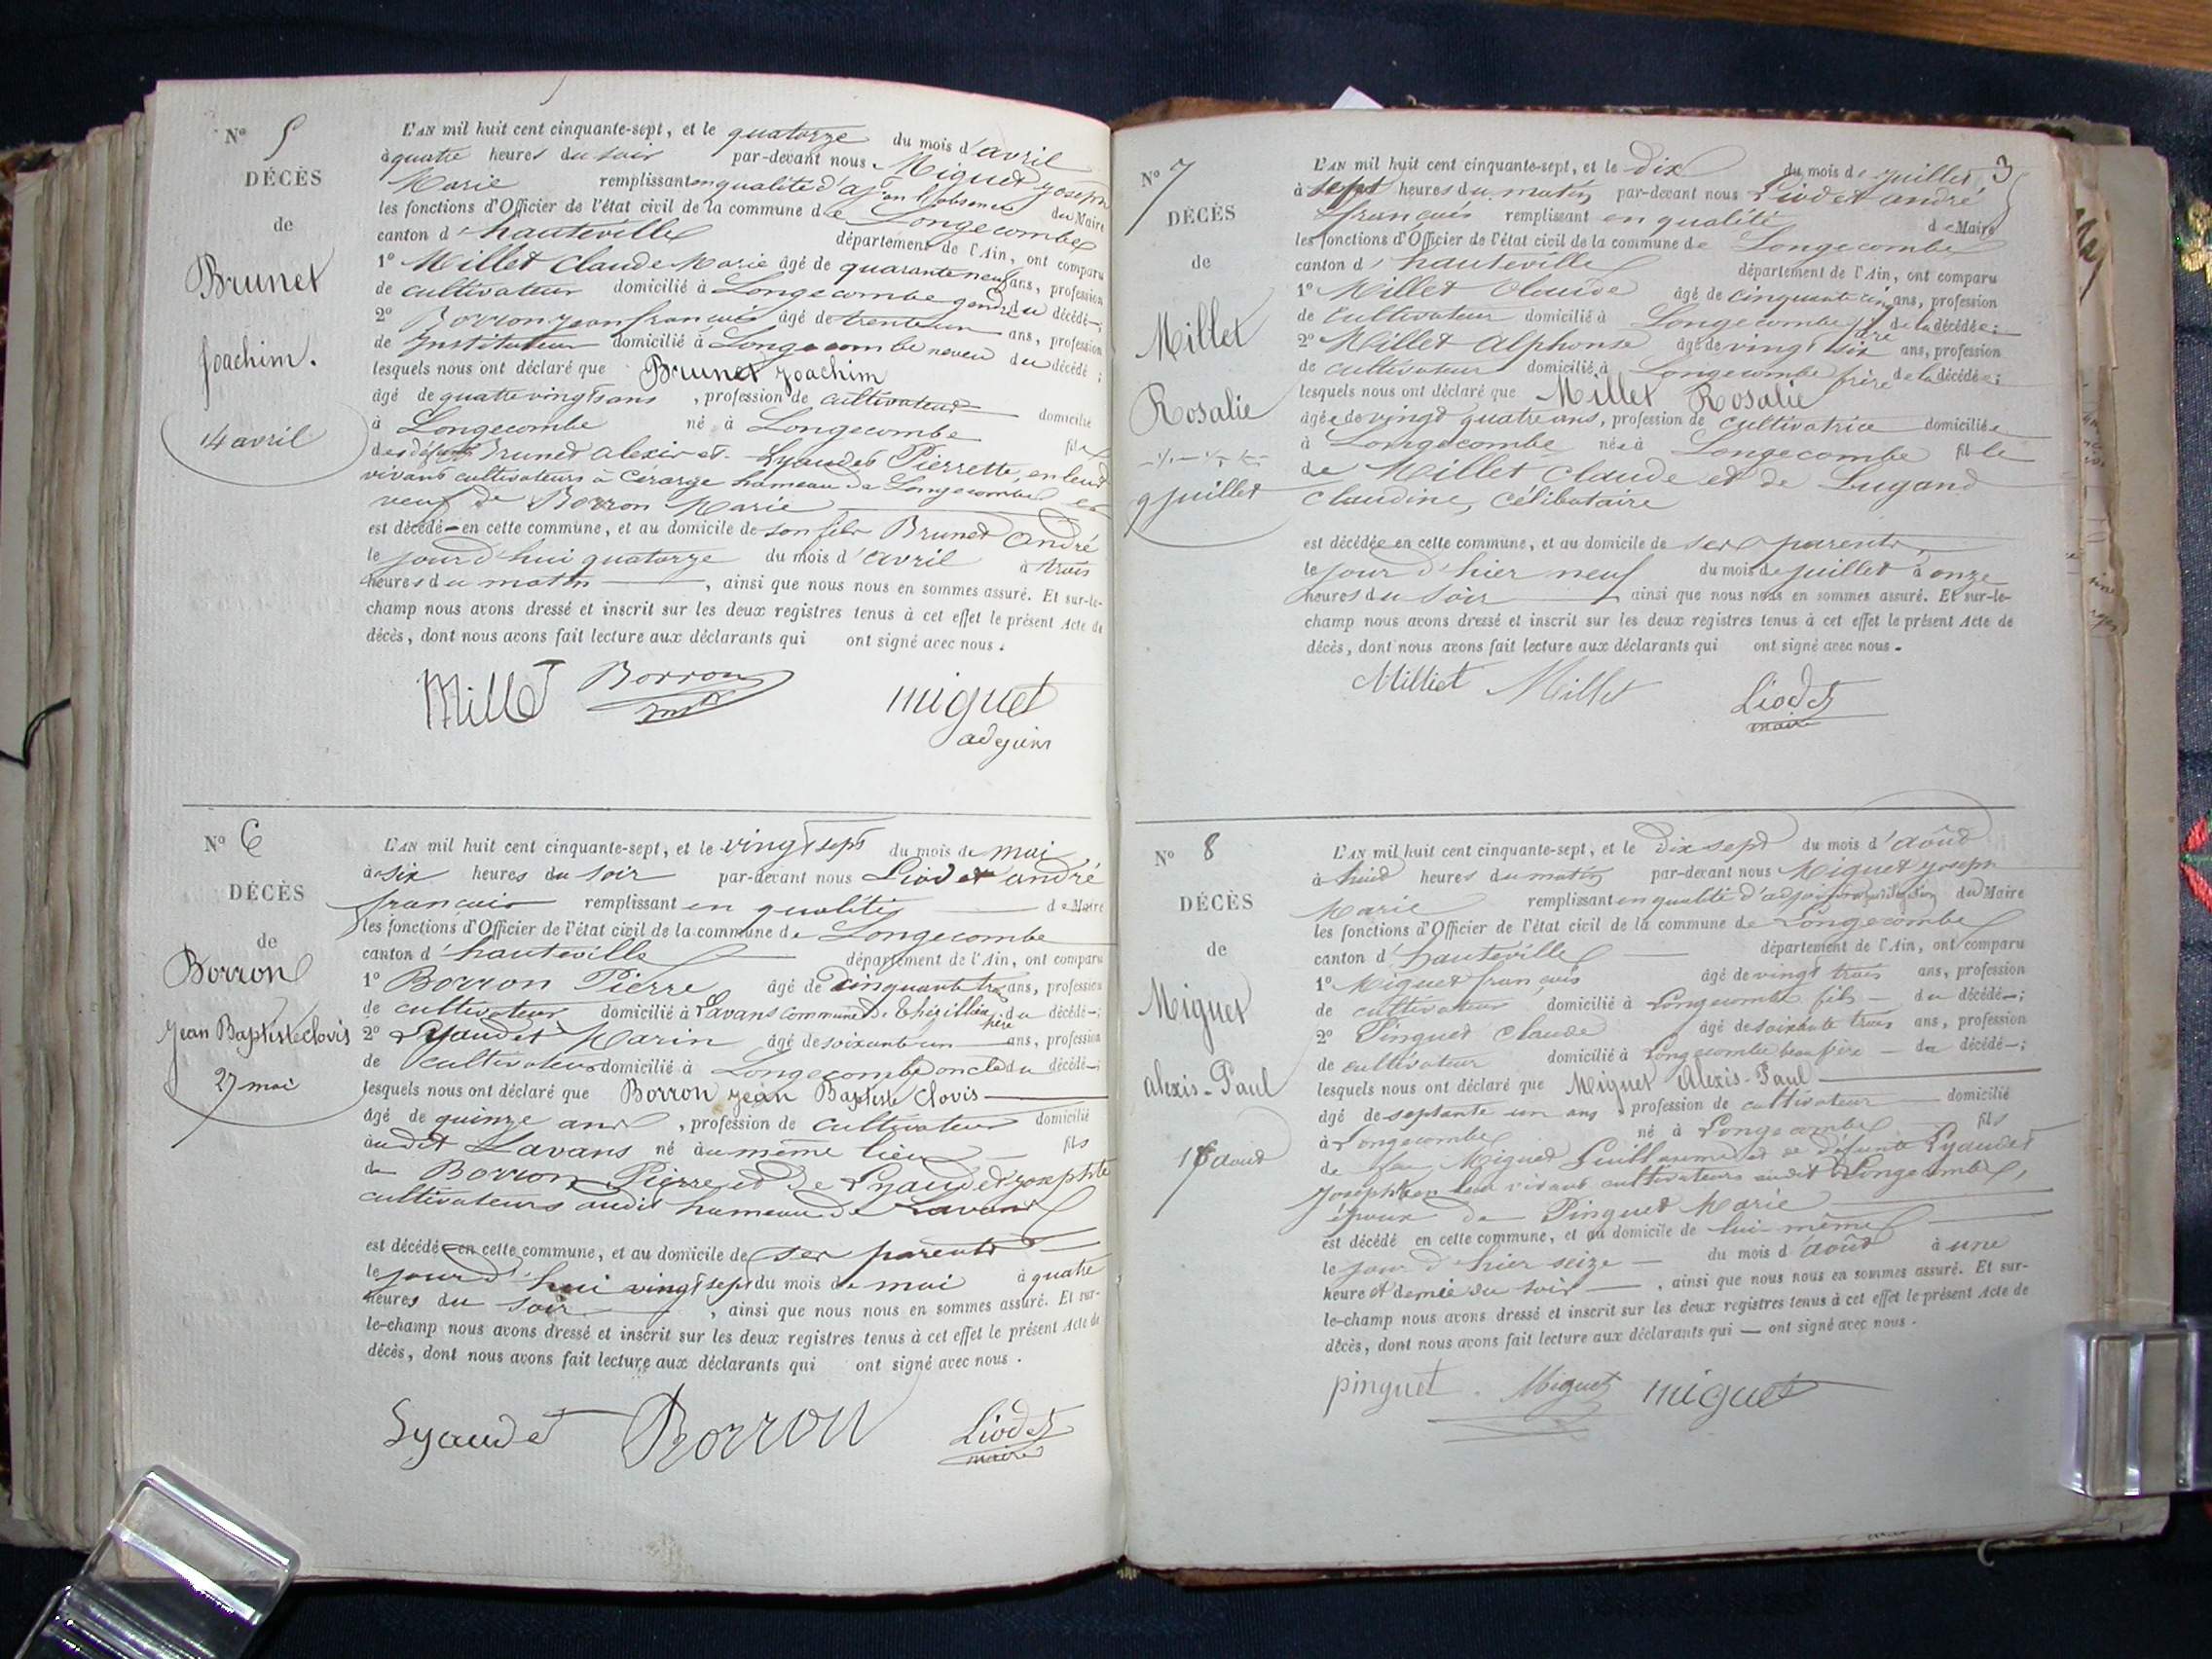 Nº 5
DÉCÈS
de
Brunet
Joachim.
14 avril
L'AN mil huit cent cinquante-sept, et le quatorze du mois d'avril
à quatre heures du soir par-devant nous Miguet joseph
Marie remplissant en qualité d'aj. en l'absence du Maire
les fonctions d'Officier de l'état civil de la commune de Longecombe
canton d'hauteville département de l'Ain, ont comparu
1º Millet Claude Marie âgé de quarante neuf ans, profession
de cultivateur domicilié à Longecombe gendre du décédé ;
2º Borron jean françois âgé de trente un ans, profession
de Instituteur domicilié à Longecombe neveu du décédé ;
lesquels nous ont déclaré que Brunet Joachim
âgé de quatre vingts ans , profession de cultivateur domicilié
à Longecombe né à Longecombe fils
des défunts Brunet alexis et Lyaudet Pierrette, en leur
vivant cultivateurs à Cérarge hameau de Longecombe et
veuf de Borron Marie
est décédé en cette commune, et au domicile de son fils Brunet André
le jourd'hui quatorze du mois d'avril à trois
heures du matin , ainsi que nous nous en sommes assuré. Et sur-le-
champ nous avons dressé et inscrit sur les deux registres tenus à cet effet le présent Acte de
décès, dont nous avons fait lecture aux déclarants qui ont signé avec nous.
Millet Borron miguet
adjoint
Nº 6
DÉCÈS
de
Borron
Jean Baptiste Clovis
27 mai
L'AN mil huit cent cinquante-sept, et le vingt sept du mois de mai
à six heures du soir par-devant nous Liodet andré
françois remplissant en qualité de Maire
les fonctions d'Officier de l'état civil de la commune de Longecombe
canton d'hauteville département de l'Ain, ont comparu
1º Borron Pierre âgé de cinquante trois ans, profession
de cultivateur domicilié à Lavans commune de Thézillieu père du décédé ;
2º Lyaudet Marin âgé de soixante un ans, profession
de cultivateur domicilié à Longecombe oncle du décédé ;
lesquels nous ont déclaré que Borron jean Baptiste Clovis
âgé de quinze ans , profession de cultivateur domicilié
audit Lavans né au même lieu fils
de Borron Pierre et de Lyaudet josephte
cultivateurs audit hameau de Lavans
est décédé en cette commune, et au domicile de ses parents
le jourd'hui vingt sept du mois de mai à quatre
heures du soir , ainsi que nous nous en sommes assuré. Et sur-
le-champ nous avons dressé et inscrit sur les deux registres tenus à cet effet le présent Acte de
décès, dont nous avons fait lecture aux déclarants qui ont signé avec nous.
Lyaudet Borron Liodet
maire
3
Nº 7
DÉCÈS
de
Millet
Rosalie
9 juillet
L'AN mil huit cent cinquante-sept, et le dix du mois de juillet
à sept heures du matin par-devant nous Liodet andré
françois remplissant en qualité de Maire
les fonctions d'Officier de l'état civil de la commune de Longecombe
canton d'hauteville département de l'Ain, ont comparu
1º Millet Claude âgé de cinquante cinq ans, profession
de cultivateur domicilié à Longecombe père de la décédée ;
2º Millet Alphonse âgé de vingt six ans, profession
de cultivateur domicilié à Longecombe frère de la décédée ;
lesquels nous ont déclaré que Millet Rosalie
âgée de vingt quatre ans, profession de cultivatrice domiciliée
à Longecombe née à Longecombe fille
de Millet Claude et de Lugand
Claudine, célibataire
est décédée en cette commune, et au domicile de ses parents,
le jour d'hier neuf du mois de juillet à onze
heures du soir ainsi que nous nous en sommes assuré. Et sur-le-
champ nous avons dressé et inscrit sur les deux registres tenus à cet effet le présent Acte de
décès, dont nous avons fait lecture aux déclarants qui ont signé avec nous.
Milliet Millet Liodet
maire
Nº 8
DÉCÈS
de
Miguet
alexis-Paul
16 août
L'AN mil huit cent cinquante-sept, et le dix sept du mois d'août
à huit heures du matin par-devant nous Miguet joseph
Marie remplissant en qualité d'adjoint du Maire
les fonctions d'Officier de l'état civil de la commune de Longecombe
canton d'hauteville département de l'Ain, ont comparu
1º Miguet françois âgé de vingt trois ans, profession
de cultivateur domicilié à Longecombe fils du décédé ;
2º Pinguet Claude âgé de soixante trois ans, profession
de cultivateur domicilié à Longecombe beau frère du décédé ;
lesquels nous ont déclaré que Miguet Alexis-Paul
âgé de septante un ans , profession de cultivateur domicilié
à Longecombe né à Longecombe fils
de feu Miguet Guillaume et de défunte Lyaudet
Josephte en leur vivant cultivateurs audit Longecombe,
époux de Pinguet Marie
est décédé en cette commune, et au domicile de lui-même
le jour d'hier seize du mois d'août à une
heure et demie du soir , ainsi que nous nous en sommes assuré. Et sur-
le-champ nous avons dressé et inscrit sur les deux registres tenus à cet effet le présent Acte de
décès, dont nous avons fait lecture aux déclarants qui ont signé avec nous.
pinguet. Miguet miguet